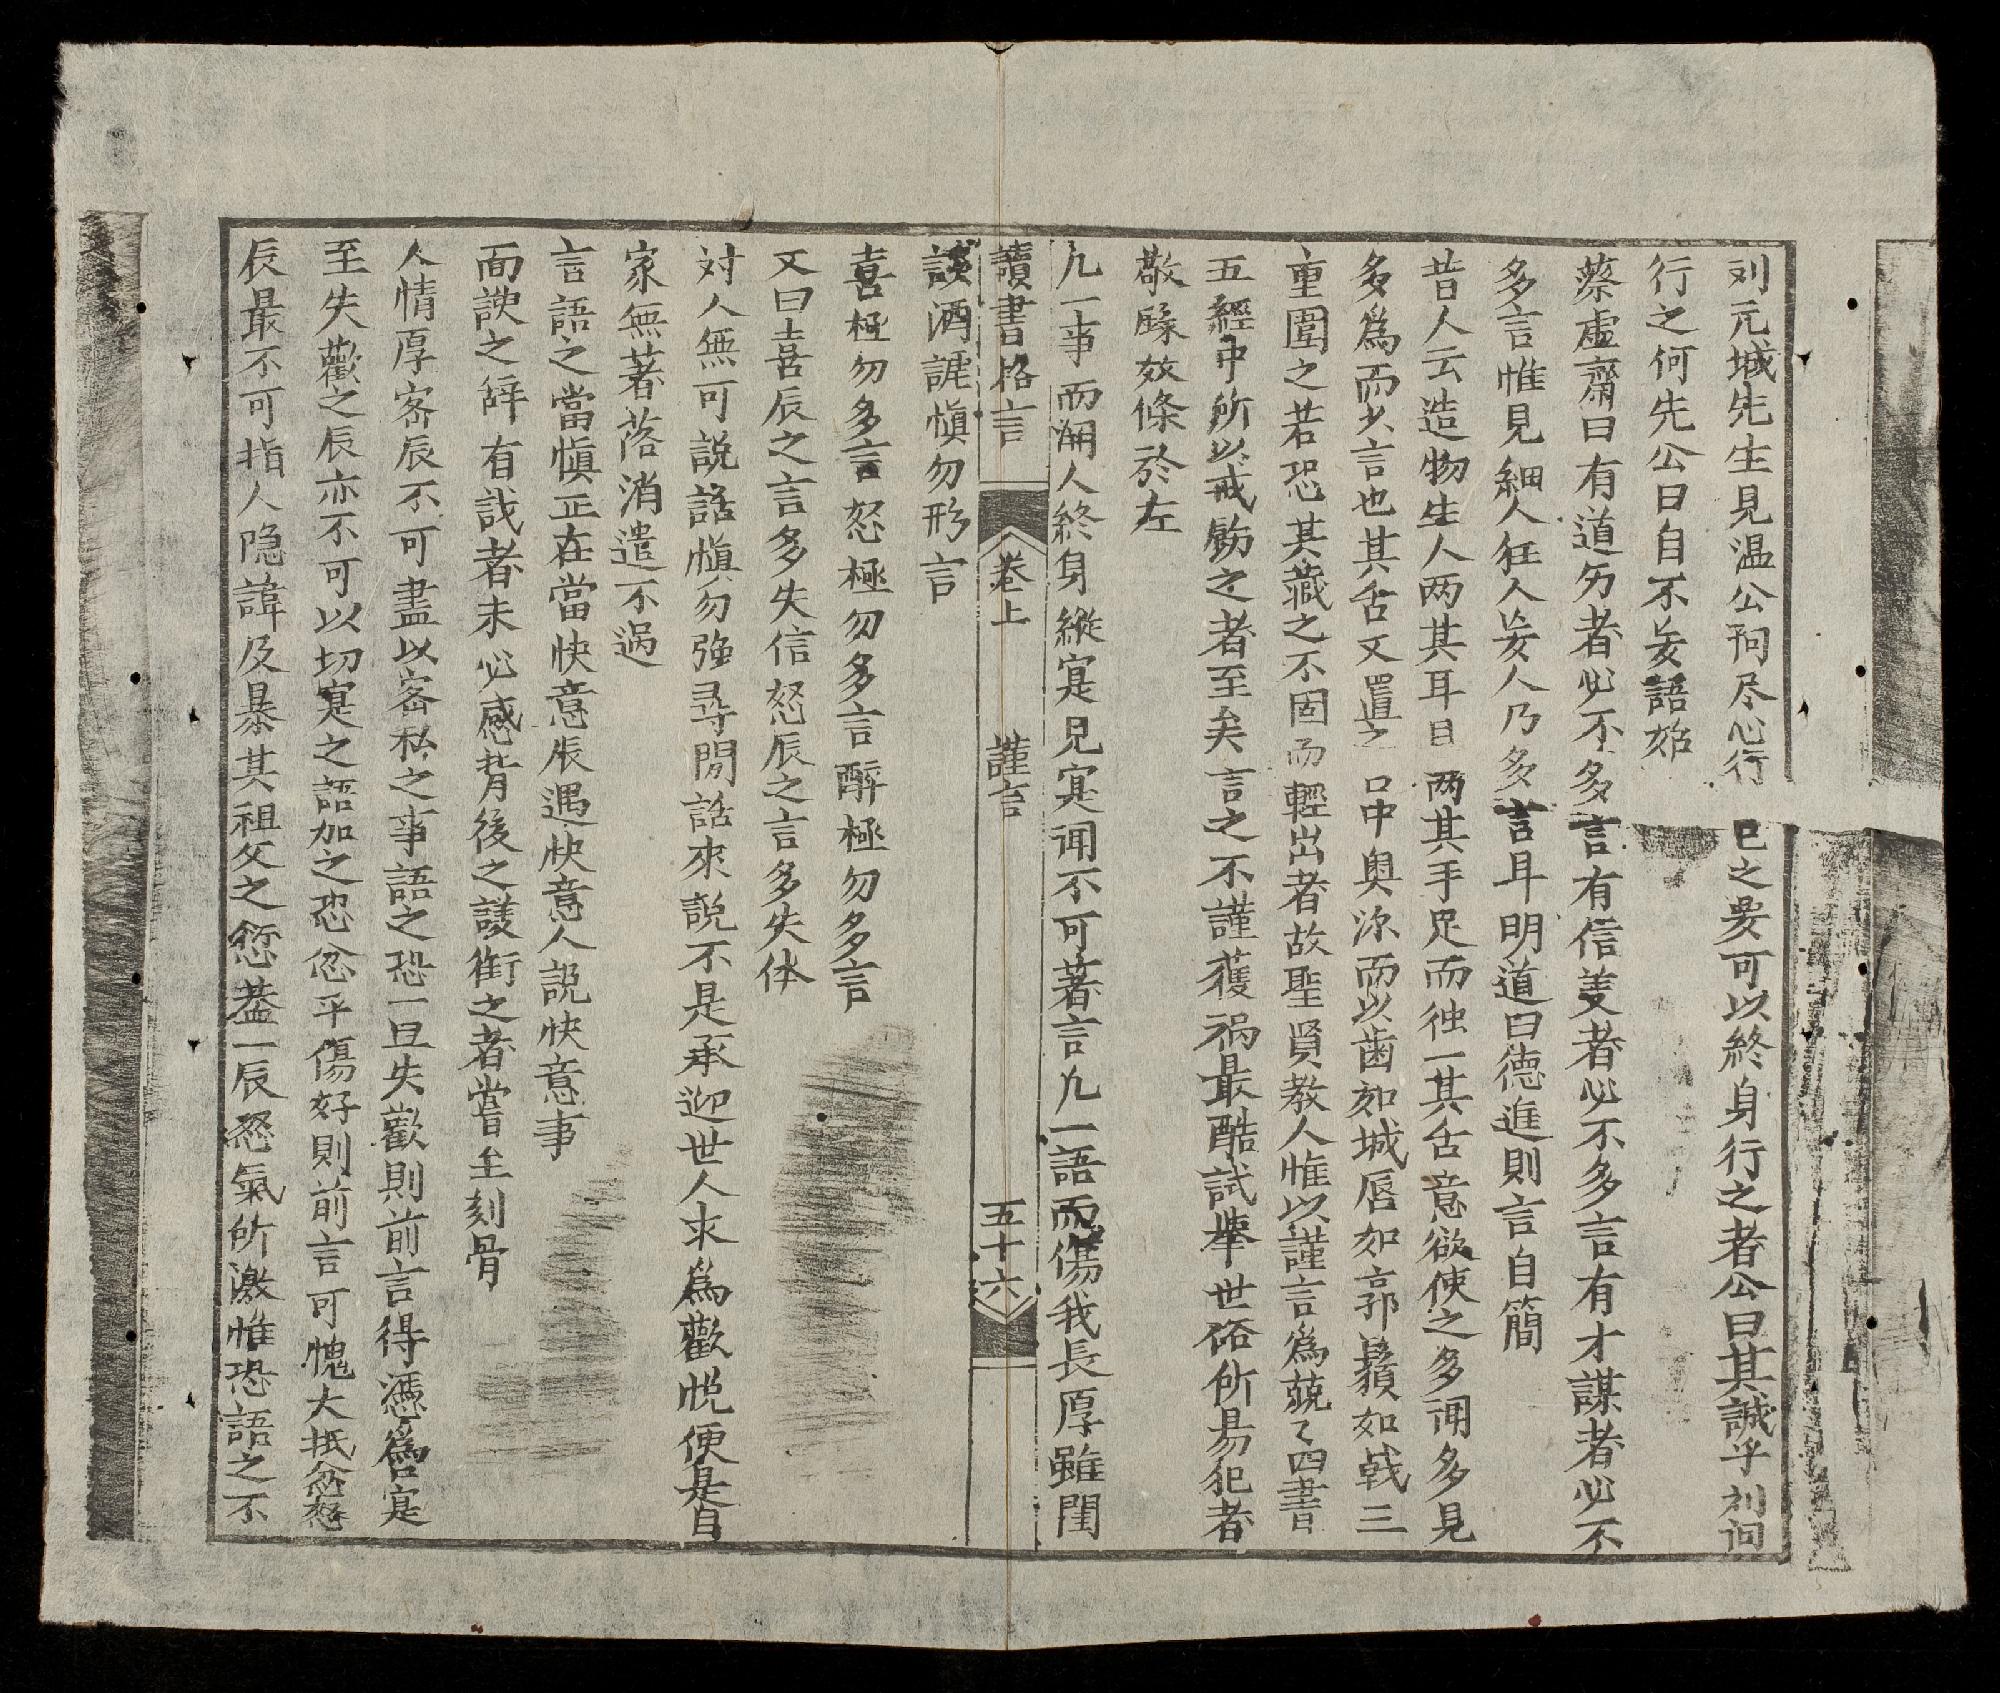 刘元城先生見温公问尽心行己之要可以終身行之者公曰其誠乎刘问
行之何先公曰自不妄語始
蔡虛齋曰有道労者必不多言有信美者必不多言有才謀者必不
多言惟見細人狂人妄人乃多言耳明道曰德進則言自簡
昔人云造物生人两其耳目两其手足而独一其舌意欲使之多闻多見
多為而少言也其舌又置之口中奥深而以歯如城唇如郭鬚如戟三
重圍之若恐其藏之不固而輕出者故聖賢教人惟以謹言為兢〻四書
五經中所以戒勵之者至矣言之不謹獲祸最酷試举世俗所易犯者
敬條於左
凡一事而関人終身縱寔見寔闻不可著言凡一語而傷我長厚雖閒
讀書格言 卷上 謹言 五十六
談酒謔慎勿形言
喜極勿多言怒極勿多言醉極勿多言
又曰喜辰之言多失信怒辰之言多失体
対人無可説話慎勿強尋閒話來説不是承迎世人求為歡悦便是自
家無著落消遣不過
言語之當慎正在當快意辰遇快意人說快意事
面諛之辞有識者未必感背後之議銜之者嘗至刻骨
人情厚密辰不可盡以密私之事語之恐一旦失歡則前言得憑為寔
至失歡之辰亦不可以切寔之語加之恐忿平傷好則前言可愧大抵忿怒
辰最不可指人隐諱及暴其祖父之愆蓋一辰怒氣所激惟恐語之不